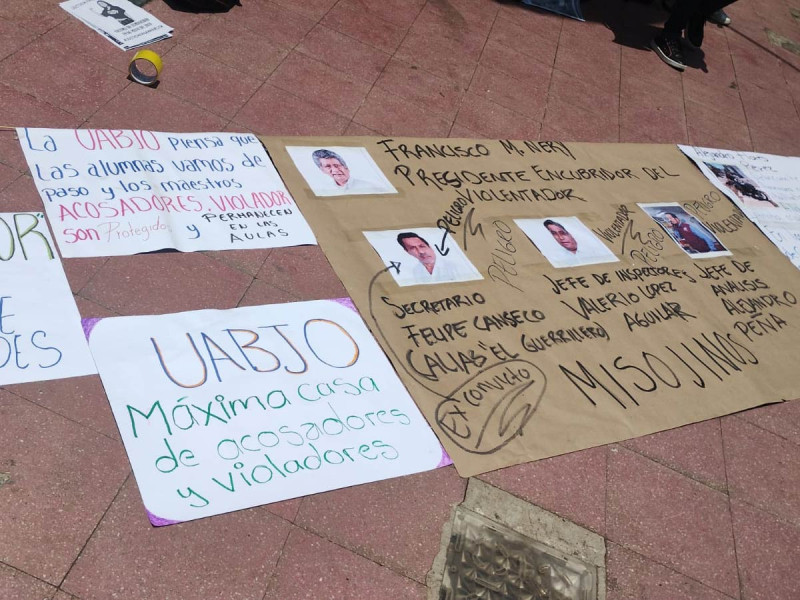 La UABJO Piensa que
las alumnas vamos de
paso y los maestros
ACOSADORES, VIOLADOR
son Protegidos y PERMANECEN EN
LAS AULAS
OR"
E
DES
UABJO
Máxima casa
de acosadores
y violadores
FRANCISCO M. NERY
PRESIDENTE ENCUBRIDOR DEL
VIOLENTADOR
PELIGRO
PELIGRO
SECRETARIO
FELIPE CANSECO
CALIAS "EL GUERRILLERO)
EX CONVICTO
VIOLENTADOR
PELIGRO
JEFE DE INSPECTORES
VALERIO LOPEZ
AGUILAR
PELIGRO
VIOLENTADOR
JEFE DE
ANALISIS
ALEJANDRO
PEÑA
MISOJINOS